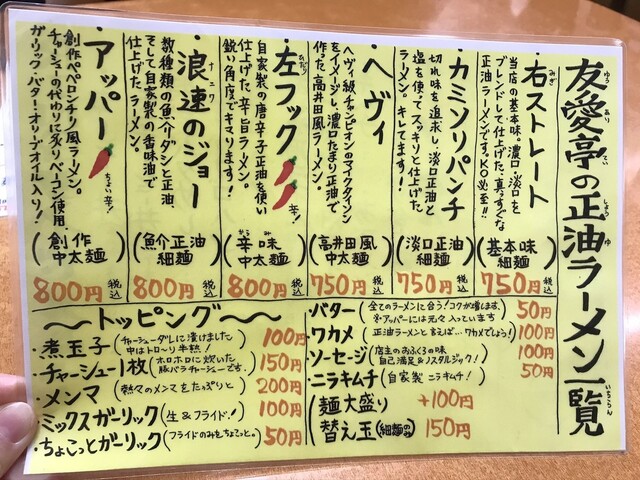 友愛亭の正油ラーメン一覧
ゆう あい てい しょう ゆ いちらん
・右ストレート
みぎ
当店の基本味。濃口・淡口を
ブレンドして仕上げた、真っすぐな
正油ラーメンです。KO必至!!
(基本味 細麺)
750円 税込
・カミソリパンチ
切れ味を追求し、淡口正油と
塩を使って、スッキリと仕上げた
ラーメン。キレてます!
(淡口正油 細麺)
750円 税込
・ヘヴィ
ヘヴィ級チャンピオンのマイクタイソン
をイメージし、濃口たまり正油で
作った、高井田風ラーメン。
(高井田風 中太麺)
750円 税込
・左フック 辛!
ひだり
自家製の唐辛子正油を使い
仕上げた、辛旨ラーメン。
鋭い角度でキマります!
(辛味 中太麺)
からみ
800円 税込
・浪速のジョー
ナニワ
数種類の魚介ダシと正油、
そして自家製の香味油で
仕上げた、ラーメン。
(魚介正油 細麺)
800円 税込
・アッパー ちょい辛!
創作ペペロンチーノ風ラーメン。
チャーシューの代わりに炙りベーコン使用、
ガーリック・バター・オリーブオイル入り!
(創作 中太麺)
800円 税込
〜トッピング〜
・煮玉子 (チャーシューダレに漬けました 中はトロ〜リ半熟!) 100円
・チャーシュー1枚 (ホロホロに炊いた 豚バラチャーシューです。) 150円
・メンマ (熱々のメンマをたっぷりと) 200円
・ミックスガーリック (生&フライド!) 100円
・ちょこっとガーリック (フライドのみをちょこっと。) 50円
・バター (全てのラーメンに合う!コクが増します。 ※アッパーには元々入っています) 50円
・ワカメ (正油ラーメンと言えば…ワカメでしょう!) 100円
・ソーセージ (店主のおふくろの味 自己満足&ノスタルジック!) 100円
・ニラキムチ (自家製 ニラキムチ!) 50円
麺大盛り +100円
替え玉(細麺のみ) 150円